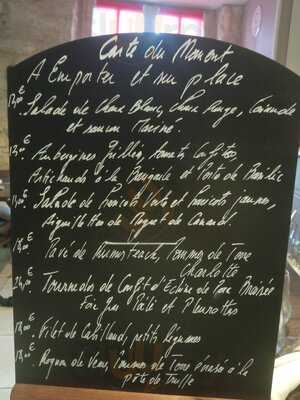 Carte du Moment
A Emporter et sur place
Salade de Choux Blanc, Choux Rouge,
et saumon Mariné.
Aubergines Grillées, Tomates Confites
Artichauds à la Barigoule et Pesto de Basilic
Salade de Haricots Verts et Haricots jaunes,
Aiguillettes de Magret de Canard.
18,00€ Pavé de Rumsteack, Pommes de Terre
Charlotte
24,00€ Tournedos de Confit d'Echine de Porc Braisée
Foie Gras Poêlé et Pleurottes
18,00€ Filet de Cabillaud, petits légumes
18,00€ Rognon de Veau, Pommes de Terre écrasée à la
pâte de Truffe